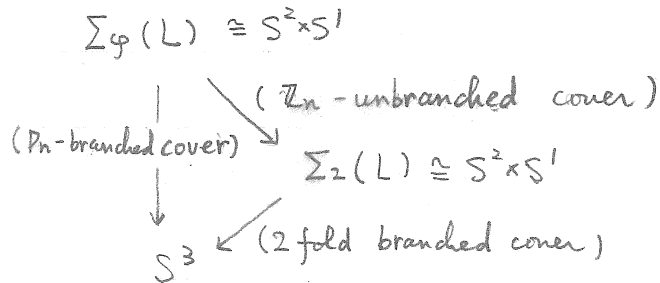 Σφ(L) ≅ S²×S¹
(ℤn-unbranched cover)
(Dn-branched cover)
Σ₂(L) ≅ S²×S¹
S³
(2 fold branched cover)